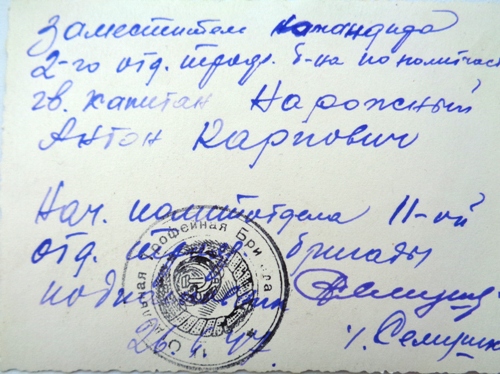 Заместители командира
2-го отд. троф. б-на по политчасти
гв. капитан Нарожный
Антон Карпович
Нач. политотдела 11-ой
отд. троф. бригады
подполковник
26.
/. Селицк
Трофейная Бригада